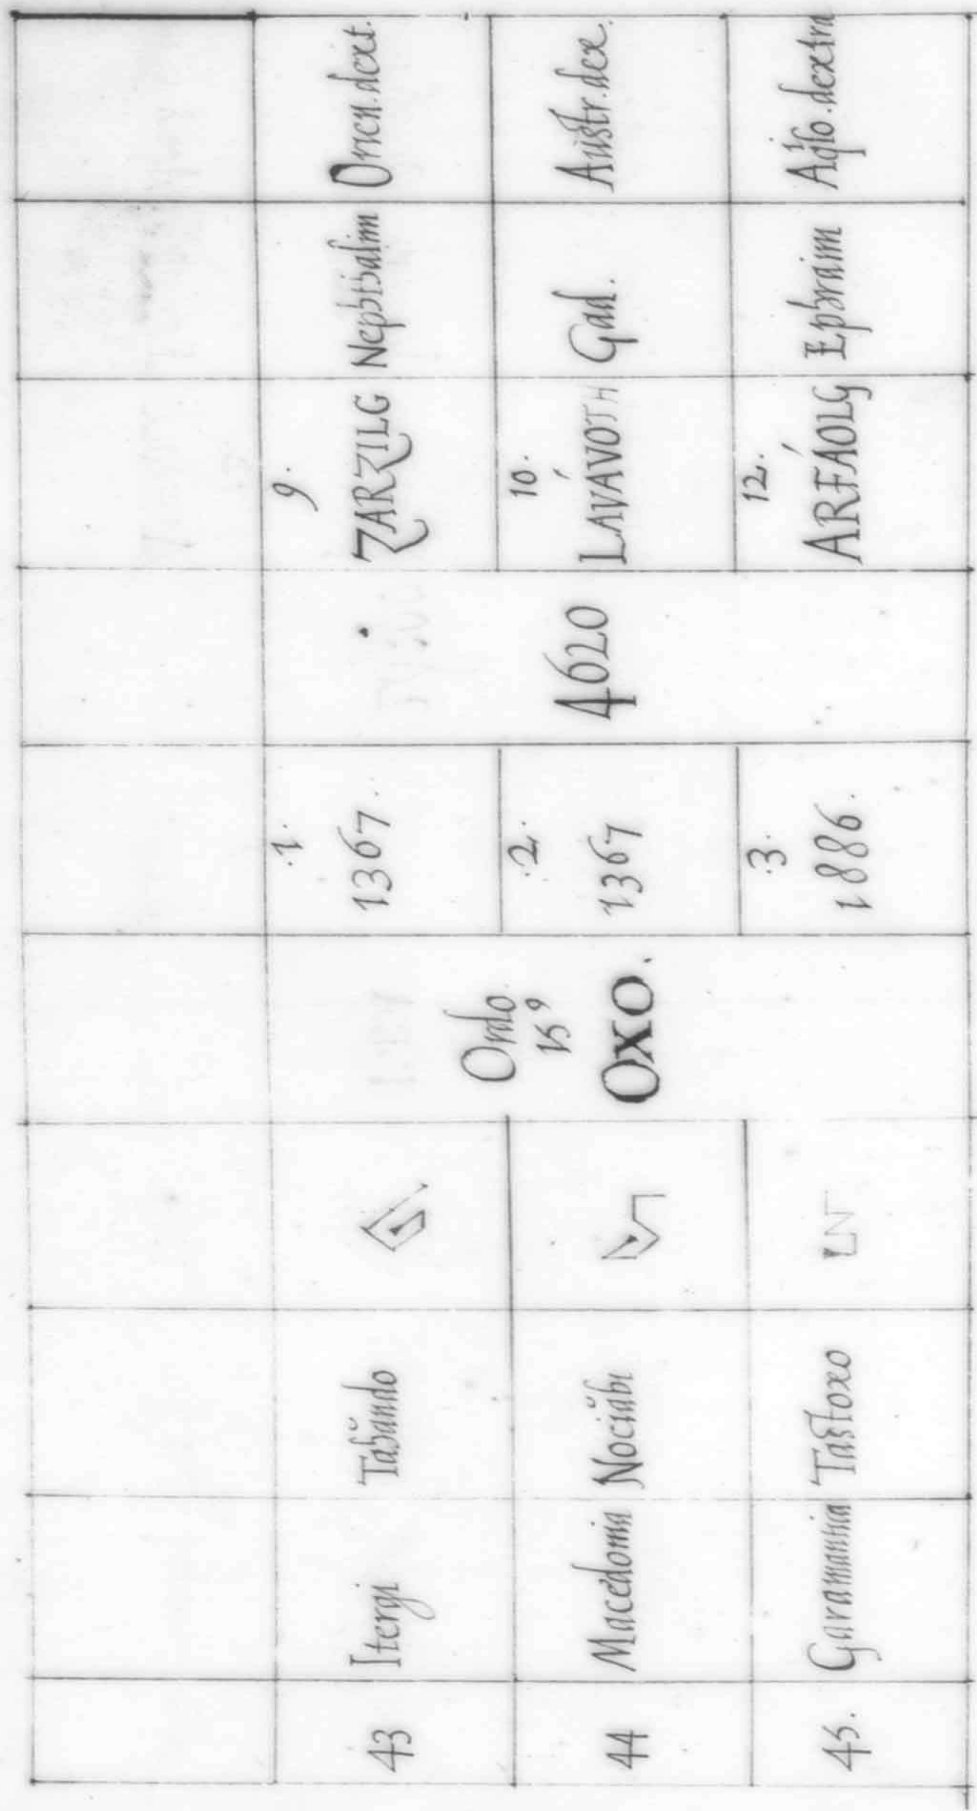 43 Itergi Tabãndo Ordo 15⁹ OXO. .1. 1367. 4620 9. ZARZILG Nephthalim Orien. dext.
44 Macedonia Nociabi .2. 1367 10. LAVAVOTH Gad. Austr. dex.
45. Garamantica Tastoxo .3. 1886. 12. ARFAOLG Ephraim Aq̃lo. dextra